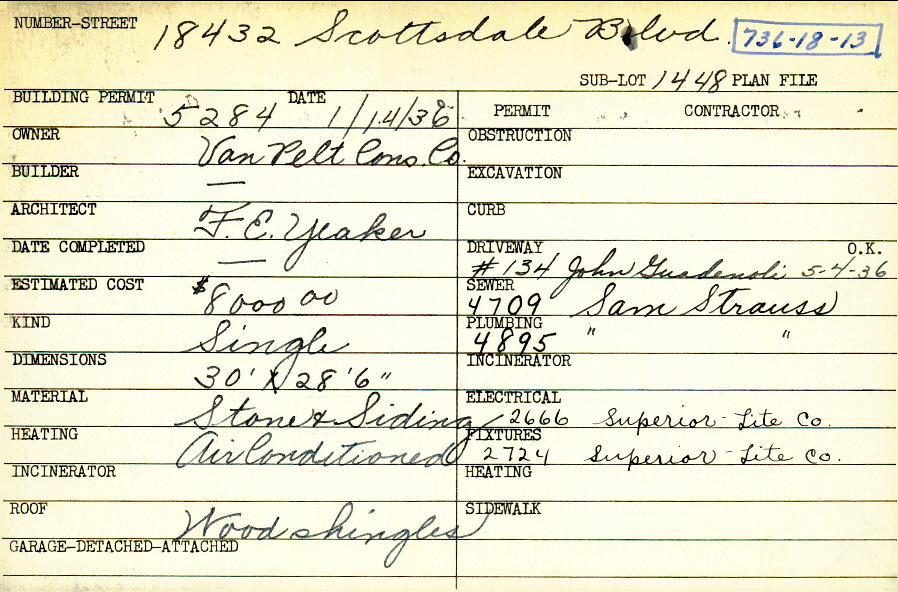 NUMBER-STREET 18432 Scottsdale Blvd. 736-18-13
SUB-LOT 1448 PLAN FILE
BUILDING PERMIT 5284 DATE 1/14/36 PERMIT CONTRACTOR
OWNER Van Pelt Cons. Co. OBSTRUCTION
BUILDER — EXCAVATION
ARCHITECT F. E. Yeaker CURB
DATE COMPLETED — DRIVEWAY O.K.
# 134 John 5-4-36
ESTIMATED COST $8000 00 SEWER 4709 Sam Strauss
KIND Single PLUMBING 4895 " "
DIMENSIONS 30' X 28'6" INCINERATOR
MATERIAL Stone & Siding ELECTRICAL 2666 Superior-Lite Co.
HEATING Air Conditioned FIXTURES 2724 Superior-Lite Co.
INCINERATOR HEATING
ROOF Wood shingles SIDEWALK
GARAGE-DETACHED-ATTACHED